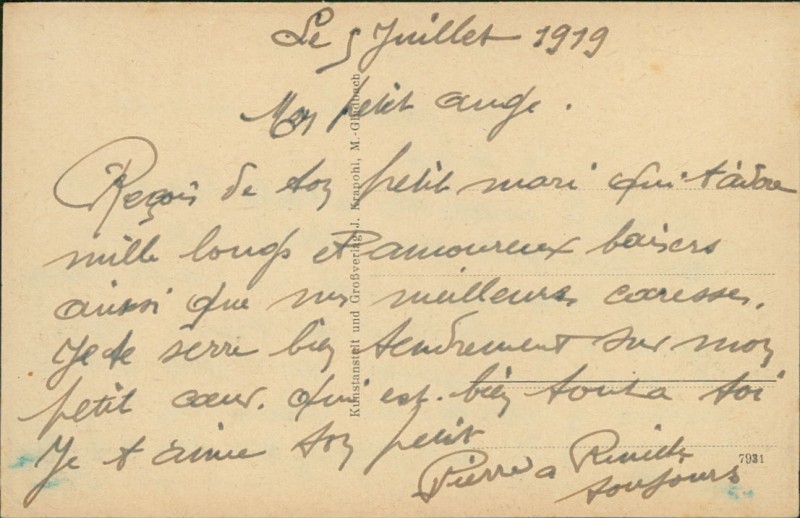 Le 5 Juillet 1919
Mon petit ange.
Reçois de ton petit mari qui t'adore
mille longs et amoureux baisers
aussi que mes meilleures caresses.
Je te serre bien tendrement sur mon
petit cœur. qui est bien tout a toi
Je t'aime ton petit
Pierre a
toujours
Kunstanstalt und Großverlag J. Krapohl, M.-Gladbach
7931